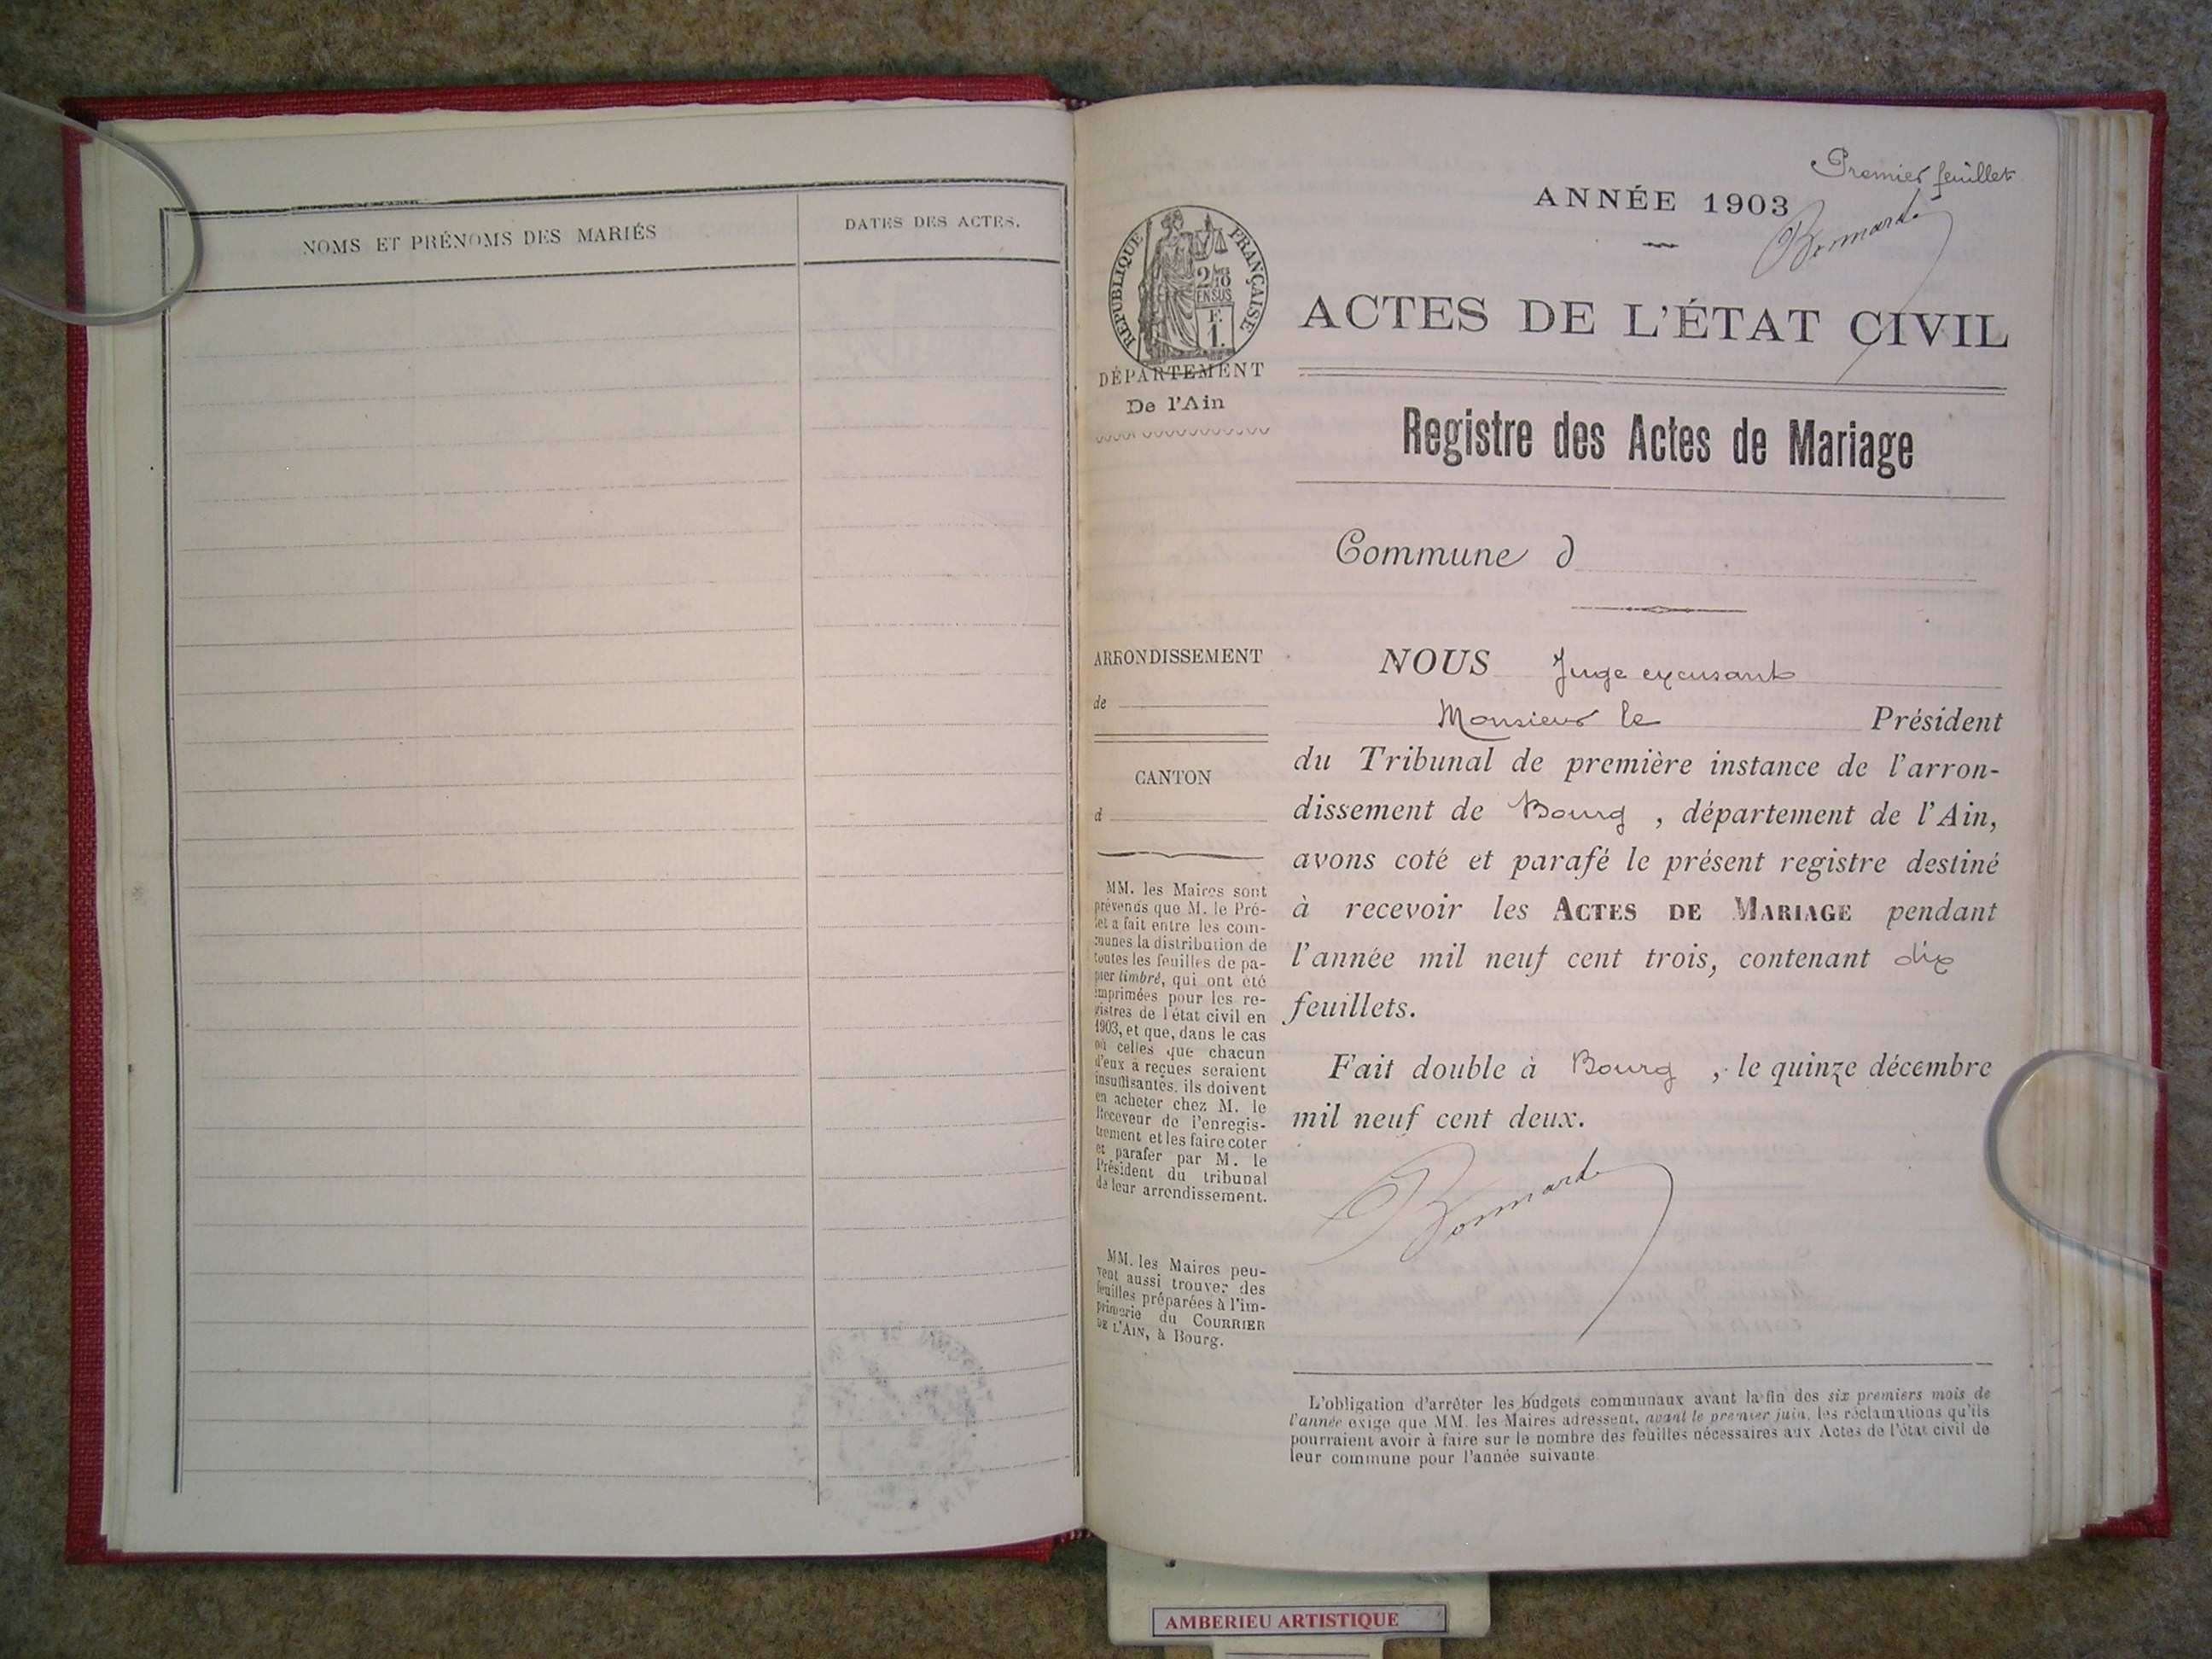 NOMS ET PRÉNOMS DES MARIÉS
DATES DES ACTES.
Premier feuillet
ANNÉE 1903
Bonnard
RÉPUBLIQUE FRANÇAISE
2/10
EN SUS
F.
1.
ACTES DE L'ÉTAT CIVIL
DÉPARTEMENT
De l'Ain
Registre des Actes de Mariage
Commune d
ARRONDISSEMENT
de
CANTON
d
MM. les Maires sont
prévenus que M. le Pré-
fet a fait entre les com-
munes la distribution de
toutes les feuilles de pa-
pier timbré, qui ont été
imprimées pour les re-
gistres de l'état civil en
1903, et que, dans le cas
où celles que chacun
d'eux a reçues seraient
insuffisantes, ils doivent
en acheter chez M. le
Receveur de l'enregis-
trement et les faire coter
et parafer par M. le
Président du tribunal
de leur arrondissement.
MM. les Maires peu-
vent aussi trouver des
feuilles préparées à l'im-
primerie du COURRIER
DE L'AIN, à Bourg.
NOUS Juge excusant
Monsieur le Président
du Tribunal de première instance de l'arron-
dissement de Bourg, département de l'Ain,
avons coté et parafé le présent registre destiné
à recevoir les ACTES DE MARIAGE pendant
l'année mil neuf cent trois, contenant dix
feuillets.
Fait double à Bourg, le quinze décembre
mil neuf cent deux.
Bonnard
L'obligation d'arrêter les budgets communaux avant la fin des six premiers mois de
l'année exige que MM. les Maires adressent, avant le premier juin, les réclamations qu'ils
pourraient avoir à faire sur le nombre des feuilles nécessaires aux Actes de l'état civil de
leur commune pour l'année suivante
AMBERIEU ARTISTIQUE